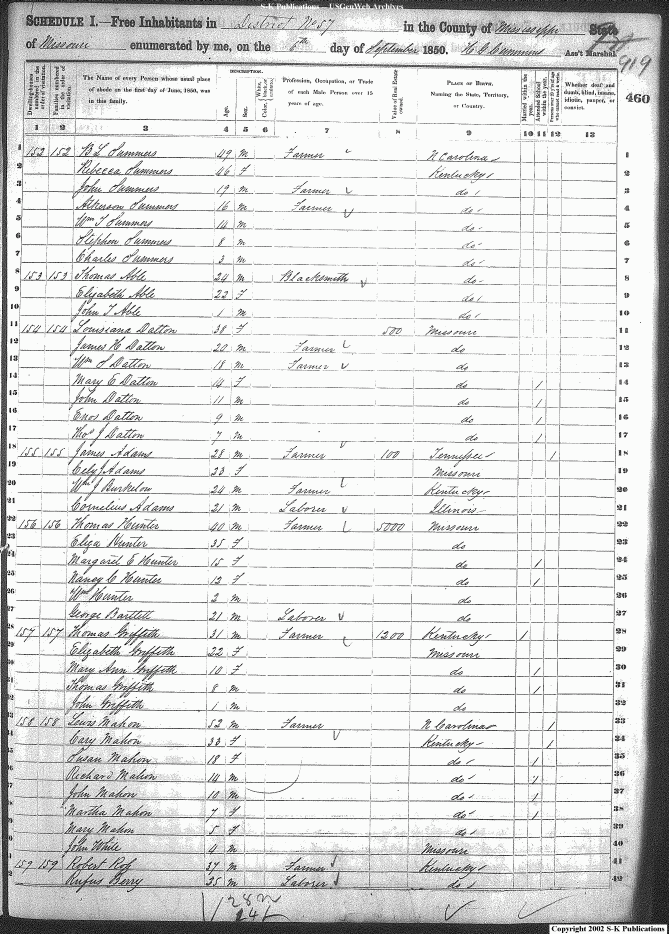 S-K Publications USGenWeb Archives
SCHEDULE I.—Free Inhabitants in District No 57 in the County of Mississippi State
of Missouri enumerated by me, on the 6th day of September 1850. Ass't Marshal.
919
460
Dwelling-houses numbered in the order of visitation. Families numbered in the order of visitation. The Name of every Person whose usual place of abode on the first day of June, 1850, was in this family. DESCRIPTION. Age. Sex. Color Profession, Occupation, or Trade of each Male Person over 15 years of age. Value of Real Estate owned. PLACE OF BIRTH. Naming the State, Territory, or Country. Married within the year. Attended School within the year. Whether deaf and dumb, blind, insane, idiotic, pauper, or convict.
1 2 3 4 5 6 7 8 9 10 11 12 13
1 152 152 B L Summers 49 M Farmer N Carolina 1
2 Rebecca Summers 46 F Kentucky 2
3 John Summers 19 M Farmer do 3
4 Atkerson Summers 16 M Farmer do 4
5 Wm T Summers 14 M do 5
6 Stephen Summers 8 M do 6
7 Charles Summers 3 M do 7
8 153 153 Thomas Able 24 M Blacksmith do 8
9 Elizabeth Able 22 F do 9
10 John T Able 1 M do 10
11 154 154 Louisiana Datton 38 F 500 Missouri 11
12 James H Datton 20 M Farmer do 12
13 Wm S Datton 18 M Farmer do 13
14 Mary E Datton 14 F do / 14
15 John Datton 11 M do / 15
16 Enos Datton 9 M do / 16
17 Thos J Datton 7 M do / 17
18 155 155 James Adams 28 M Farmer 100 Tennessee / 18
19 Cely J Adams 23 F Missouri 19
20 Wm J Burkelow 24 M Farmer Kentucky 20
21 Cornelius Adams 21 M Laborer Illinois 21
22 156 156 Thomas Hunter 40 M Farmer 5000 Missouri 22
23 Eliza Hunter 35 F do 23
24 Margaret E Hunter 15 F do / 24
25 Nancy C Hunter 12 F do / 25
26 Wm Hunter 2 M do 26
27 George Bartlett 21 M Laborer do 27
28 157 157 Thomas Griffith 31 M Farmer 1200 Kentucky / 28
29 Elizabeth Griffith 22 F Missouri 29
30 Mary Ann Griffith 10 F do / 30
31 Thomas Griffith 8 M do / 31
32 John Griffith 1 M do 32
33 158 158 Lewis Mahon 52 M Farmer N Carolina / 33
34 Cary Mahon 33 F Kentucky / 34
35 Susan Mahon 18 F do / 35
36 Richard Mahon 14 M do / 36
37 John Mahon 10 M do / 37
38 Martha Mahon 7 F do / 38
39 Mary Mahon 5 F do 39
40 John White 4 M Missouri 40
41 159 159 Robert Ross 37 M Farmer Kentucky 41
42 Rufus Berry 35 M Laborer do 42
28 m
Copyright 2002 S-K Publications